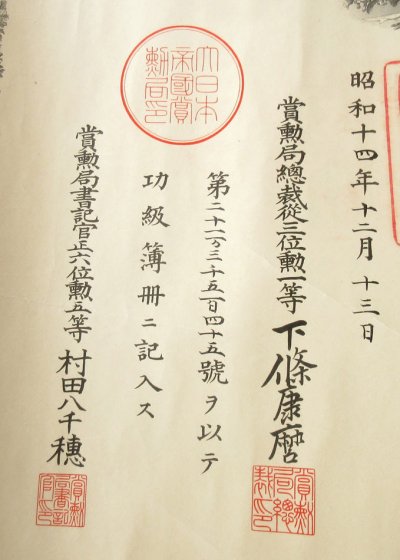 昭和十四年十二月十三日
賞勲局總裁從三位勲一等下條康麿
第二十一万三千五百四十五號ヲ以テ
功級簿冊ニ記入ス
賞勲局書記官正六位勲五等村田八千穗
大日本帝國賞勲局印
賞勲局總裁印
賞勲局書記官印